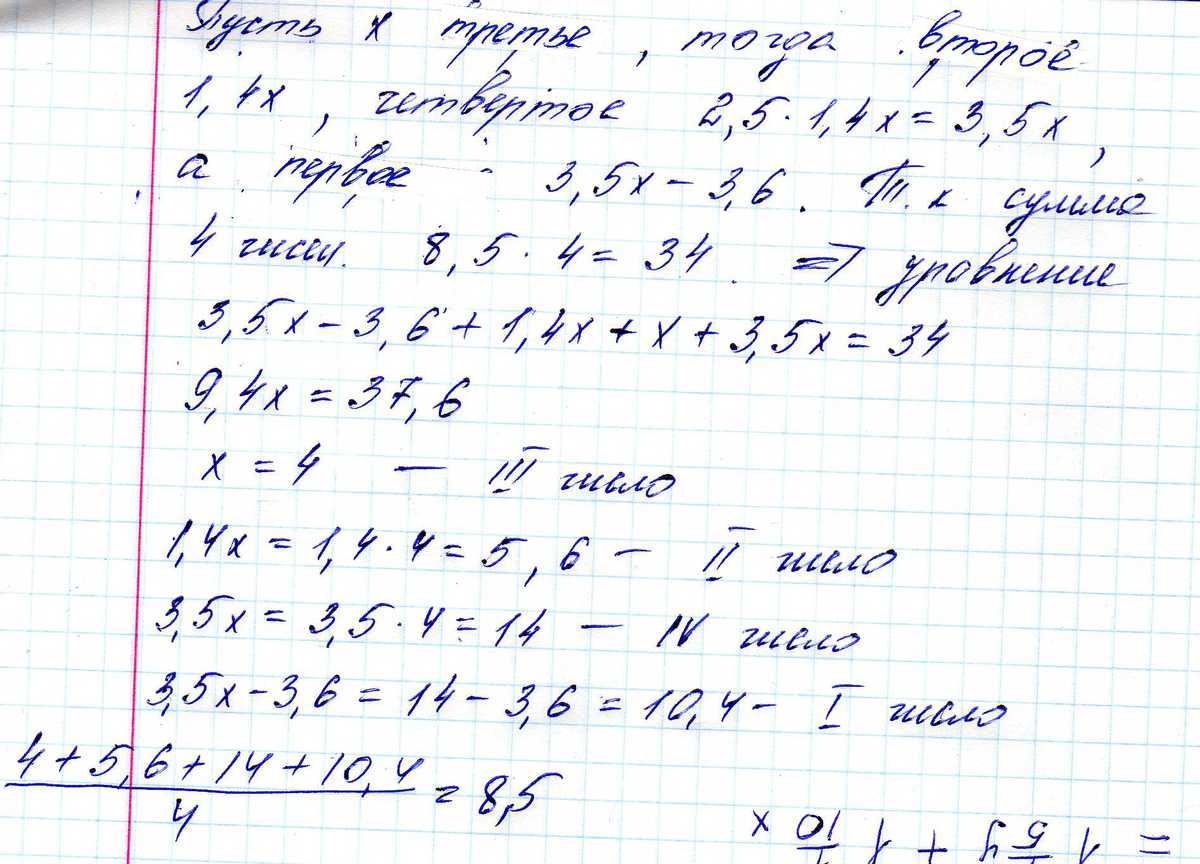 Пусть x третье, тогда второе
1,4x, четвертое 2,5·1,4x = 3,5x,
а первое - 3,5x - 3,6. Т.к сумма
4 чисел. 8,5·4 = 34. => уравнение
3,5x - 3,6 + 1,4x + x + 3,5x = 34
9,4x = 37,6
x = 4 — III число
1,4x = 1,4·4 = 5,6 — II число
3,5x = 3,5·4 = 14 — IV число
3,5x - 3,6 = 14 - 3,6 = 10,4 - I число
4 + 5,6 + 14 + 10,4
/ 4 = 8,5